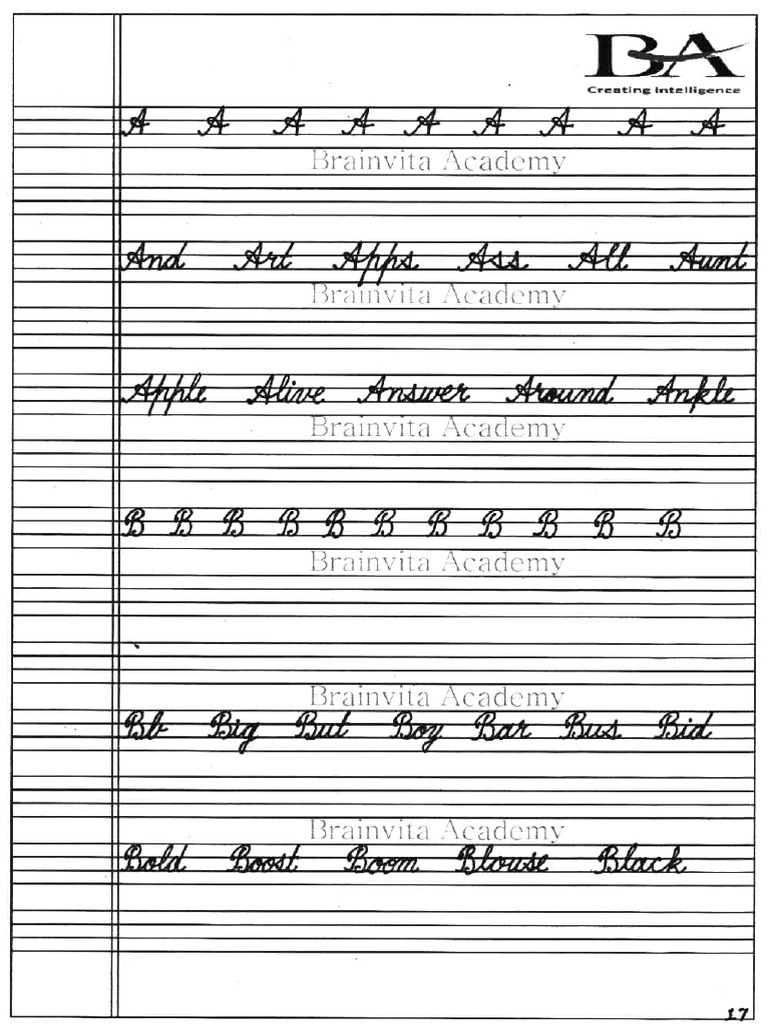 BA
Creating Intelligence
A A A A A A A A A
Brainvita Academy
And Art Apps Ass All Aunt
Brainvita Academy
Apple Alive Answer Around Ankle
Brainvita Academy
B B B B B B B B B B B
Brainvita Academy
Brainvita Academy
Bb Big But Boy Bar Bus Bid
Brainvita Academy
Bold Boost Boom Blouse Black
17